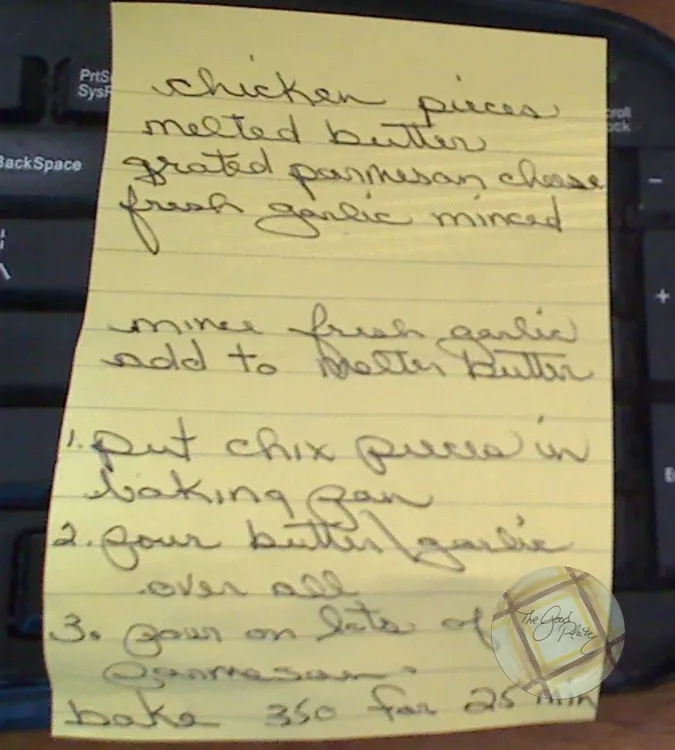 PrtS
SysR
BackSpace
croll
ock
chicken pieces
melted butter
grated parmesan cheese
fresh garlic minced
mince fresh garlic
add to melter butter
1. put chix pieces in
baking pan
2. pour butter\garlic
over all
3. pour on lots of
parmesan.
bake 350 for 25 min
The Good Plate
-
+